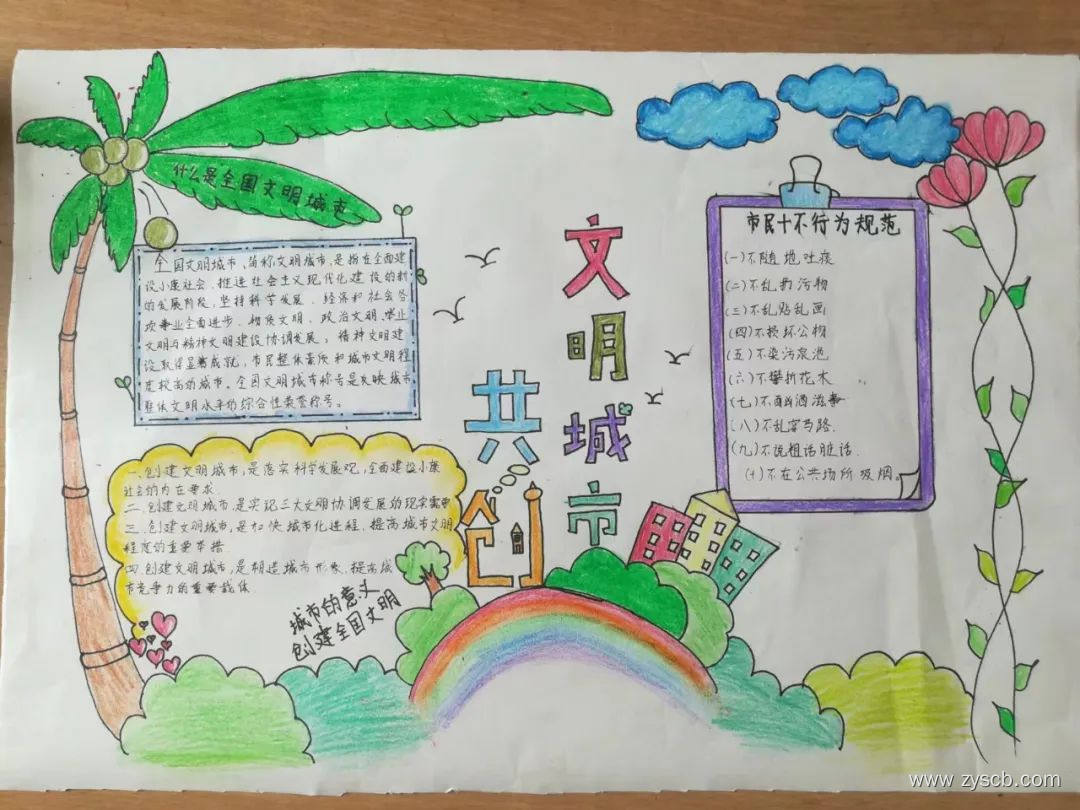 什么是全国文明城市
全国文明城市、简称文明城市、是指在全面建
设小康社会、推进社会主义现代化建设的新
的发展阶段,坚持科学发展、经济和社会各
项事业全面进步、物质文明、政治文明
文明与精神文明建设协调发展,精神文明建
设取得显著成就,市民整体素质和城市文明程
度较高的城市。全国文明城市称号是反映城市
整体文明水平的综合性荣誉称号。
一、创建文明城市,是落实科学发展观,全面建设小康
社会的内在要求.
二、创建文明城市,是实现三大文明协调发展的现实需要
三、创建文明城市,是加快城市化进程,提高城市文明
程度的重要举措
四、创建文明城市,是塑造城市形象、提高城
市竞争力的重要载体
城市的意义
创建全国文明
共创
文明城市
市民十不行为规范
(一)不随地吐痰
(二)不乱扔污物
(三)不乱贴乱画
(四)不损坏公物
(五)不染污泉池
(六)不攀折花木
(七)不酗酒滋事
(八)不乱穿马路.
(九)不说粗话脏话.
(十)不在公共场所吸烟。
www.zyscb.com